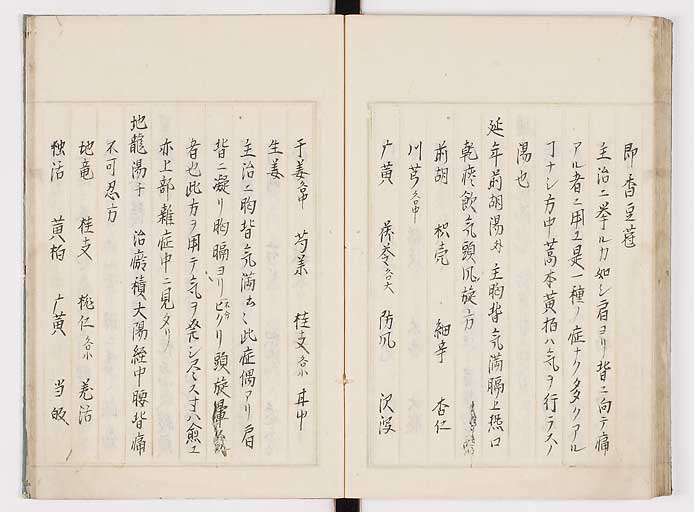 即香豆蒄
主治ニ挙ルカ如シ肩ヨリ背ニ向テ痛
アル者ニ用ユ是一種ノ症ナク多クアル
丁ナシ方中蒿本黄栢ハ气ヲ行ラスノ
陽也
延年前胡湯 主胸背气満膈上热口
乾痰飲气頭凬旋方
前胡 枳壳 細辛 杏仁
川芎各中
广黄 茯苓各大 防凬 沢瀉
干姜各中 芍薬 桂支各小 耳中
生姜
主治ニ胸背气満 此症偶アリ肩
背ニ凝リ胸膈ヨリ ヒクリ頭旋
者也此方ヲ用テ气ヲ発シ 寸ハ愈ユ
亦上部ノ雜症中ニ見タリ
地龍湯 治瘀積大陽経中腰背痛
不可忍方
地竜 桂支 桃仁各小 羗活
独活 黄栢 广黄 当皈